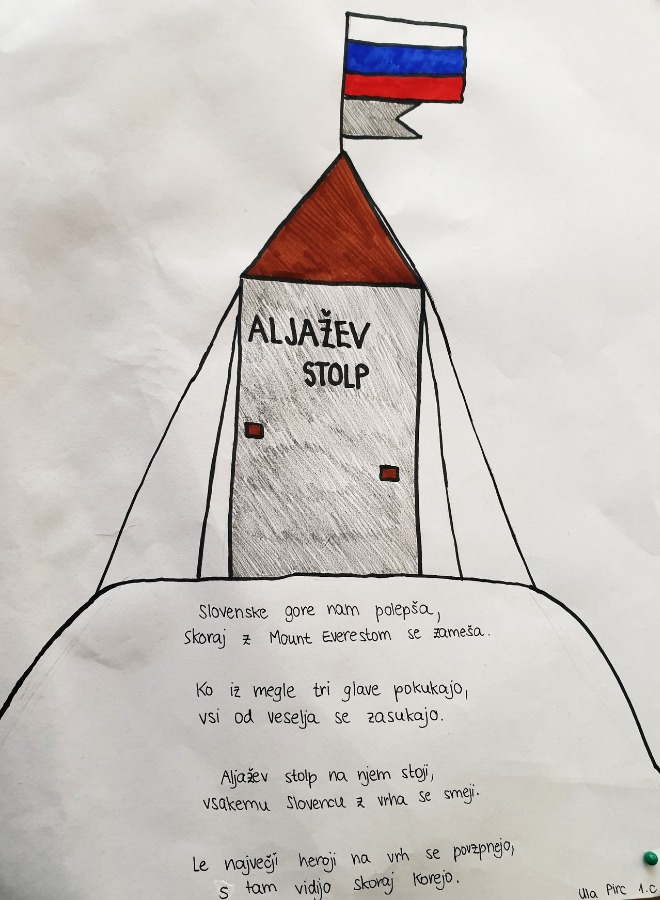 ALJAŽEV
STOLP
Slovenske gore nam polepša,
Skoraj z Mount Everestom se zameša.
Ko iz megle tri glave pokukajo,
vsi od veselja se zasukajo.
Aljažev stolp na njem stoji,
vsakemu Slovencu z vrha se smeji.
Le največji heroji na vrh se povzpnejo,
S tam vidijo skoraj Korejo.
Ula Pirc 1.c